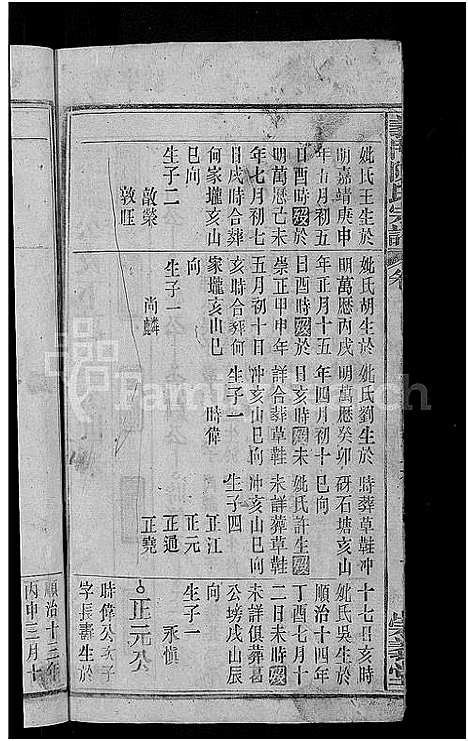 義門陳氏宗譜
卷
妣氏王生於
明嘉靖庚申
年五月初五
日酉時歿於
明萬歷己未
年七月初七
日戌時合葬
何家壠亥山
巳向
生子二
敦榮
敦旺
妣氏胡生於
明萬歷丙戌
年正月十五
日酉時歿於
崇正甲申年
五月初十日
亥時合葬何
家壠亥山巳
向
生子一
尚麟
妣氏劉生於
明萬歷癸卯
年四月初十
日亥時歿未
詳合葬草鞋
冲亥山巳向
生子一
時偉
時葬草鞋冲
研石塘亥山
巳向
妣氏許生歿
未詳葬草鞋
冲亥山巳向
生子四
正江
正元
正通
正堯
十七日亥時
妣氏吳生於
順治十四年
丁酉七月十
二日未時歿
未詳俱葬葛
公塝戌山辰
向
生子一
永慎
正元公
時偉公次子
字長壽生於
順治十三年
丙申三月十
FamilySearch